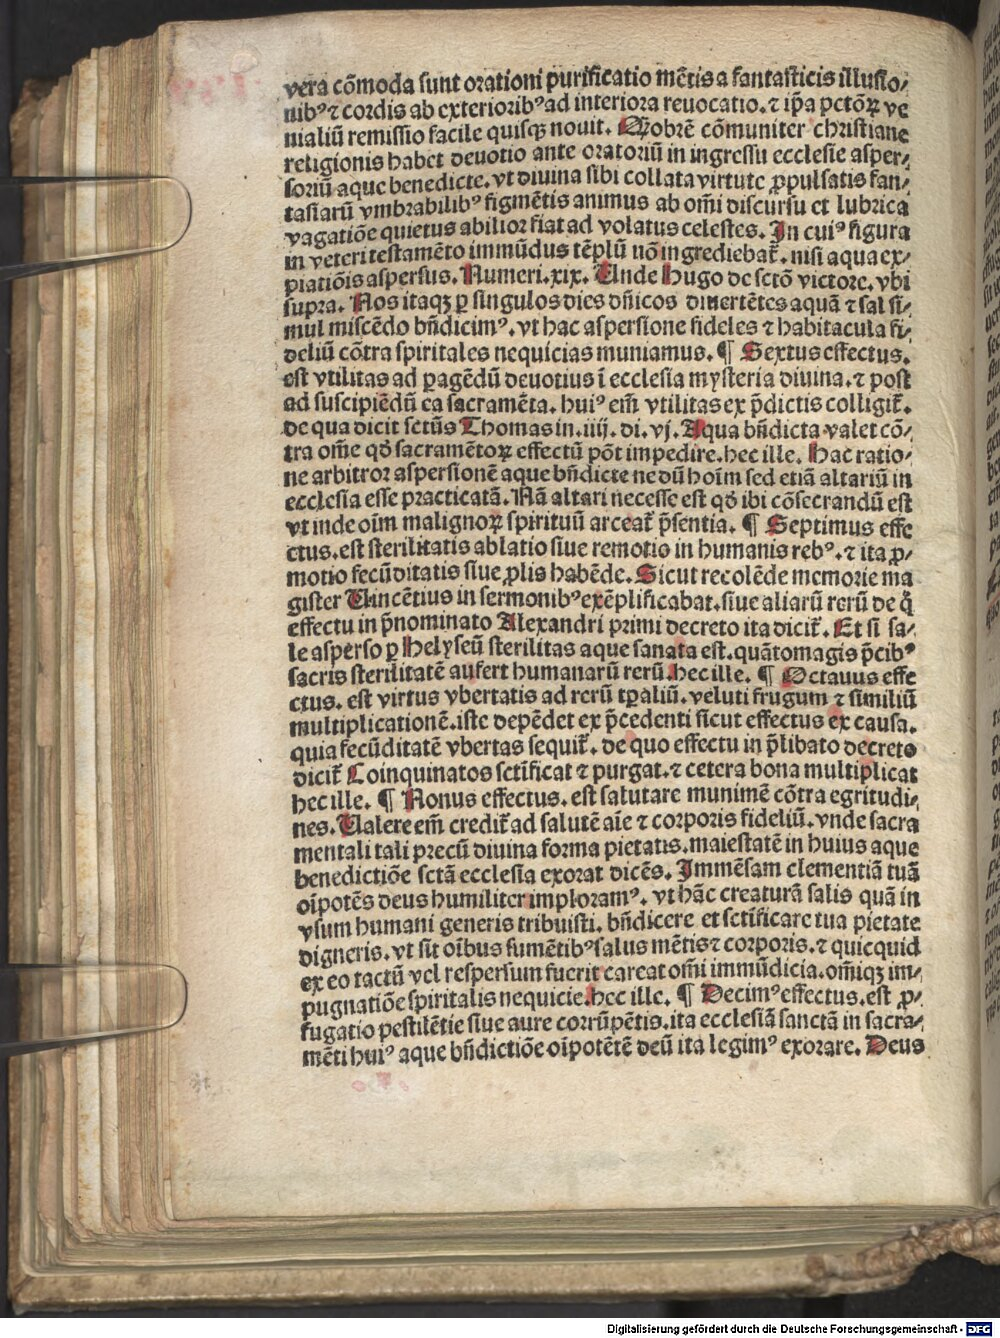 vera cōmoda sunt orationi purificatio mētis a fantasticis illusio⸗
nibꝰ ⁊ cordis ab exterioribꝰ ad interiora reuocatio. ⁊ ip̄a pctōꝝ ve
nialiū remissio facile quisqꝫ nouit. Qobrē cōmuniter christiane
religionis habet deuotio ante oratoriū in ingressu ecclesie asper⸗
soriū aque benedicte. vt diuina sibi collata virtute ꝓpulsatis fan⸗
tasiarū vmbrabilibꝰ figmētis animus ab om̄i discursu et lubrica
vagatiōe quietus abilior fiat ad volatus celestes. In cuiꝰ figura
in veteri testamēto immūdus tēplū nō ingrediebat̄. nisi aqua ex⸗
piatiōis aspersus. Numeri. xix. Unde Hugo de sctō victore. vbi
supra. Nos itaqꝫ ꝑ singulos dies dn̄icos diuertētes aquā ⁊ sal si⸗
mul miscēdo bn̄dicimꝰ. vt hac aspersione fideles ⁊ habitacula fi⸗
deliū cōtra spiritales nequicias muniamus. ¶ Sextus effectus.
est vtilitas ad ꝑagēdū deuotius ī ecclesia mysteria diuina. ⁊ post
ad suscipiēdū ea sacramēta. huiꝰ em̄ vtilitas ex p̄dictis colligit̄.
de qua dicit sctūs Thomas in. iiij. di. vj. Aqua bn̄dicta valet cō⸗
tra om̄e qd̄ sacramētoꝝ effectū pōt impedire. hec ille. Hac ratio⸗
ne arbitror aspersionē aque bn̄dicte nedū hoīm sed etiā altariū in
ecclesia esse practicatā. Nā altari necesse est qd̄ ibi cōsecrandū est
vt inde oīm malignoꝝ spirituū arceat̄ p̄sentia. ¶ Septimus effe
ctus. est sterilitatis ablatio siue remotio in humanis rebꝰ. ⁊ ita ꝓ⸗
motio fecūditatis siue ꝓlis habēde. Sicut recolēde memorie ma
gister Uincētius in sermonibꝰ exēplificabat. siue aliarū rerū de q̄
effectu in p̄nominato Alexandri primi decreto ita dicit̄. Et si sa⸗
le asperso ꝑ Helyseū sterilitas aque sanata est. quātomagis p̄cibꝰ
sacris sterilitatē aufert humanarū rerū. hec ille. ¶ Octauus effe
ctus. est virtus vbertatis ad rerū tꝑaliū. veluti frugum ⁊ similiū
multiplicationē. iste depēdet ex p̄cedenti sicut effectus ex causa.
quia fecūditatē vbertas sequit̄. de quo effectu in p̄libato decreto
dicit̄ Coinquinatos sctīficat ⁊ purgat. ⁊ cetera bona multiplicat
hec ille. ¶ Nonus effectus. est salutare munimē cōtra egritudi⸗
nes. Ualere em̄ credit̄ ad salutē aīe ⁊ corporis fideliū. vnde sacra
mentali tali precū diuina forma pietatis. maiestatē in huius aque
benedictiōe sctā ecclesia exorat dicēs. Immēsam clementiā tuā
oīpotēs deus humiliter imploramꝰ. vt hāc creaturā salis quā in
vsum humani generis tribuisti. bn̄dicere et sctīficare tua pietate
digneris. vt sit oībus sumētibꝰ salus mētis ⁊ corporis. ⁊ quicquid
ex eo tactū vel respersum fuerit careat om̄i immūdicia. om̄iqꝫ im⸗
pugnatiōe spiritalis nequicie. hec ille. ¶ Decimꝰ effectus. est ꝓ⸗
fugatio pestilētie siue aure corrūpētis. ita ecclesiā sanctā in sacra⸗
mēti huiꝰ aque bn̄dictiōe oīpotētē deū ita legimꝰ exorare. Deus
Digitalisierung gefördert durch die Deutsche Forschungsgemeinschaft - DFG